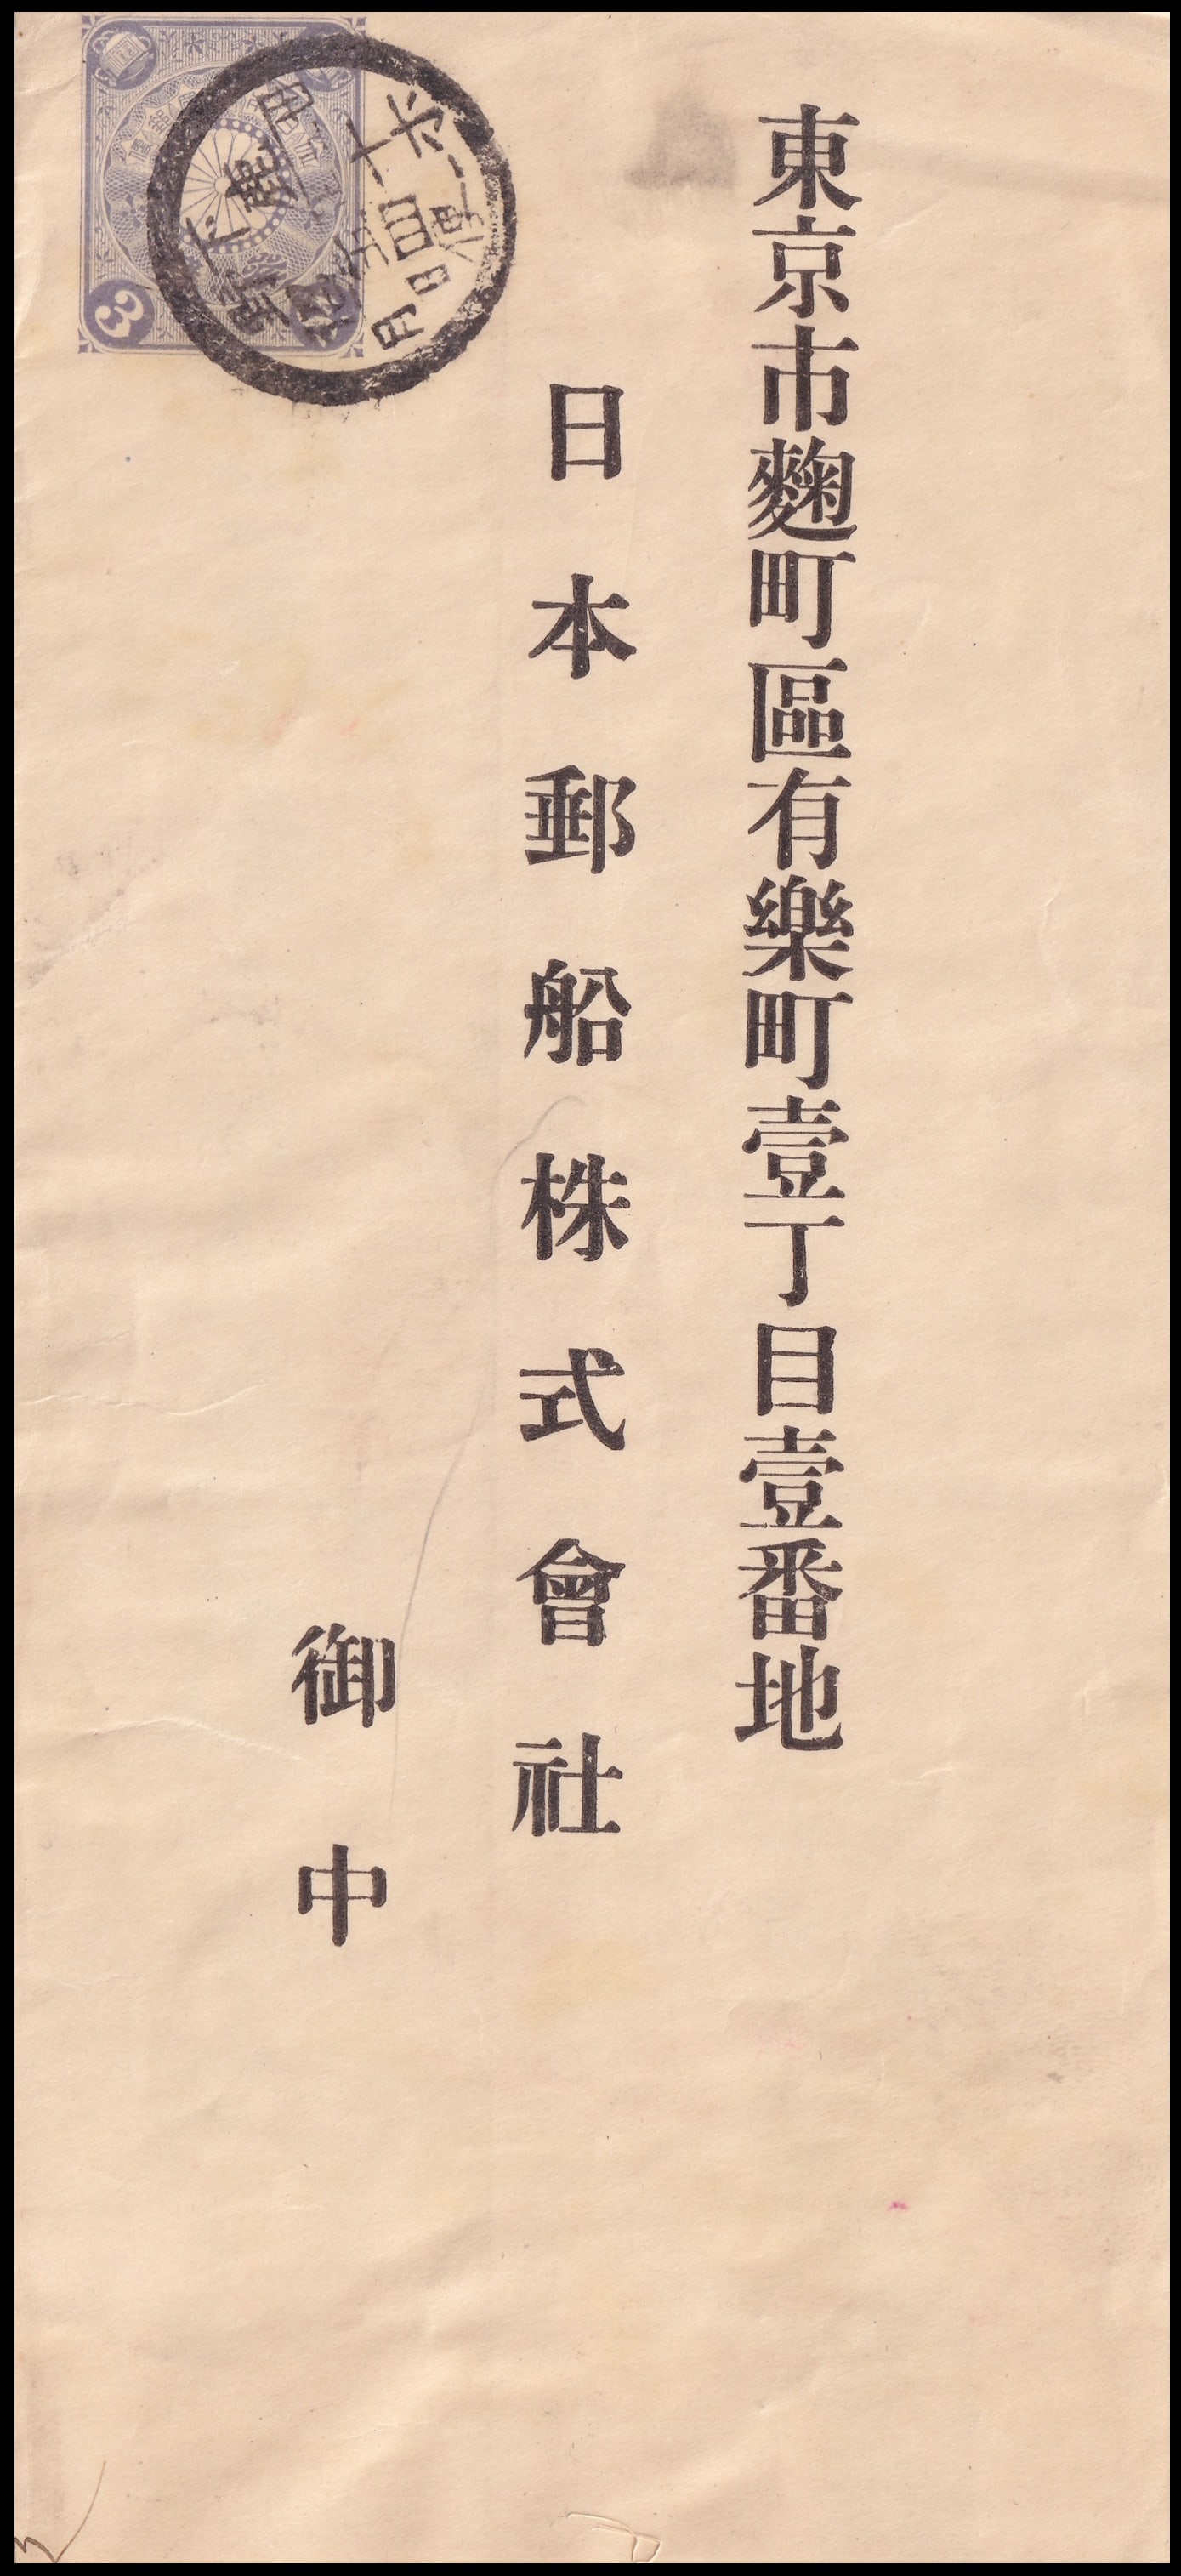 東京市麴町區有樂町壹丁目壹番地
日本郵船株式會社
御中
3